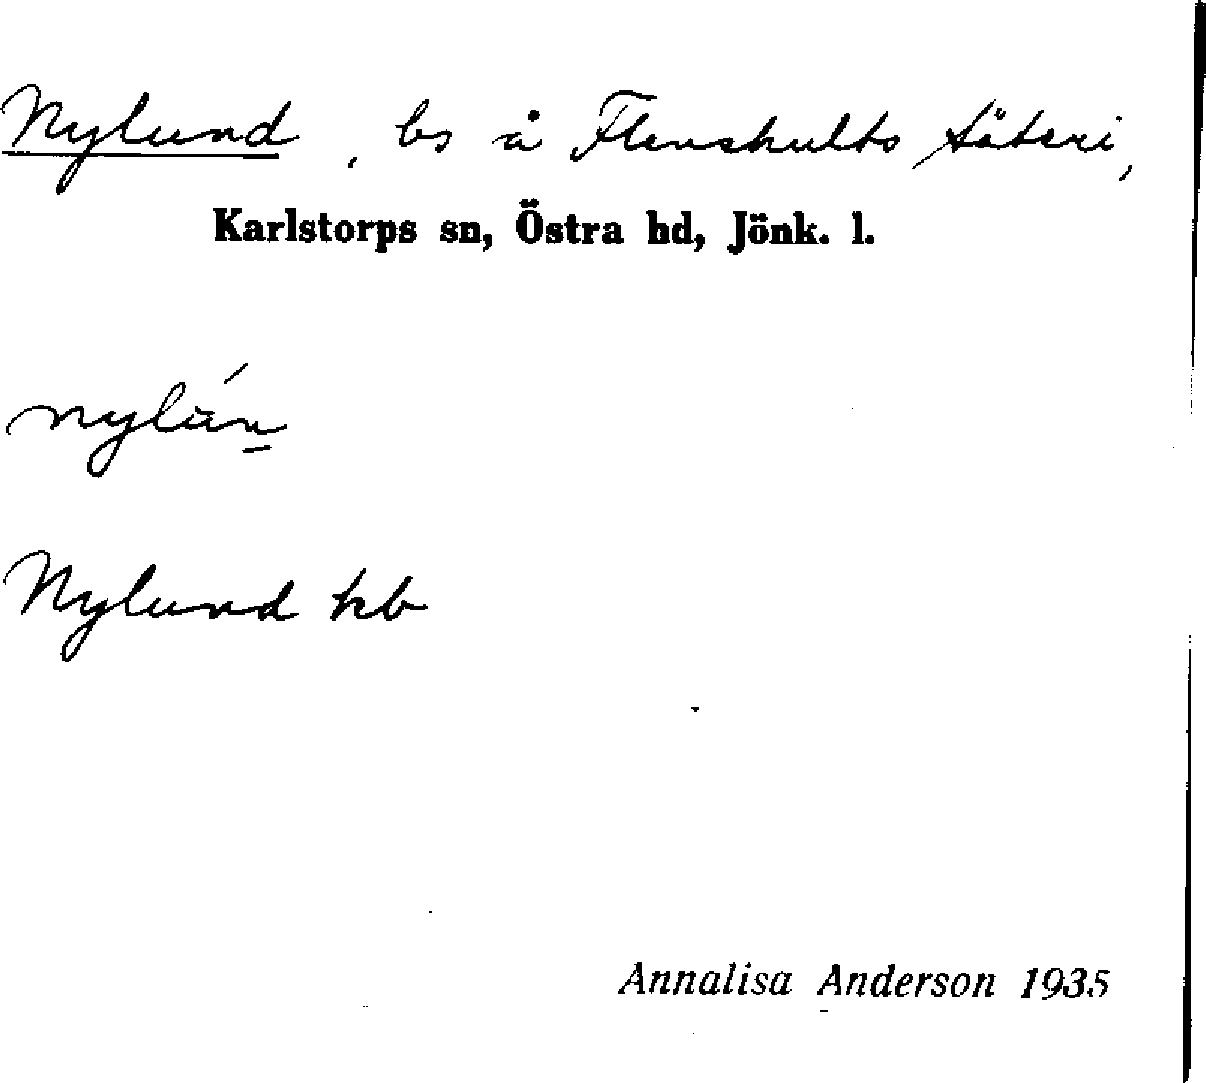 Nylund, bs å Flenshults säteri,
Karlstorps sn, Östra hd, Jönk. l.
nylún
Nylund kb
Annalisa Anderson 1935